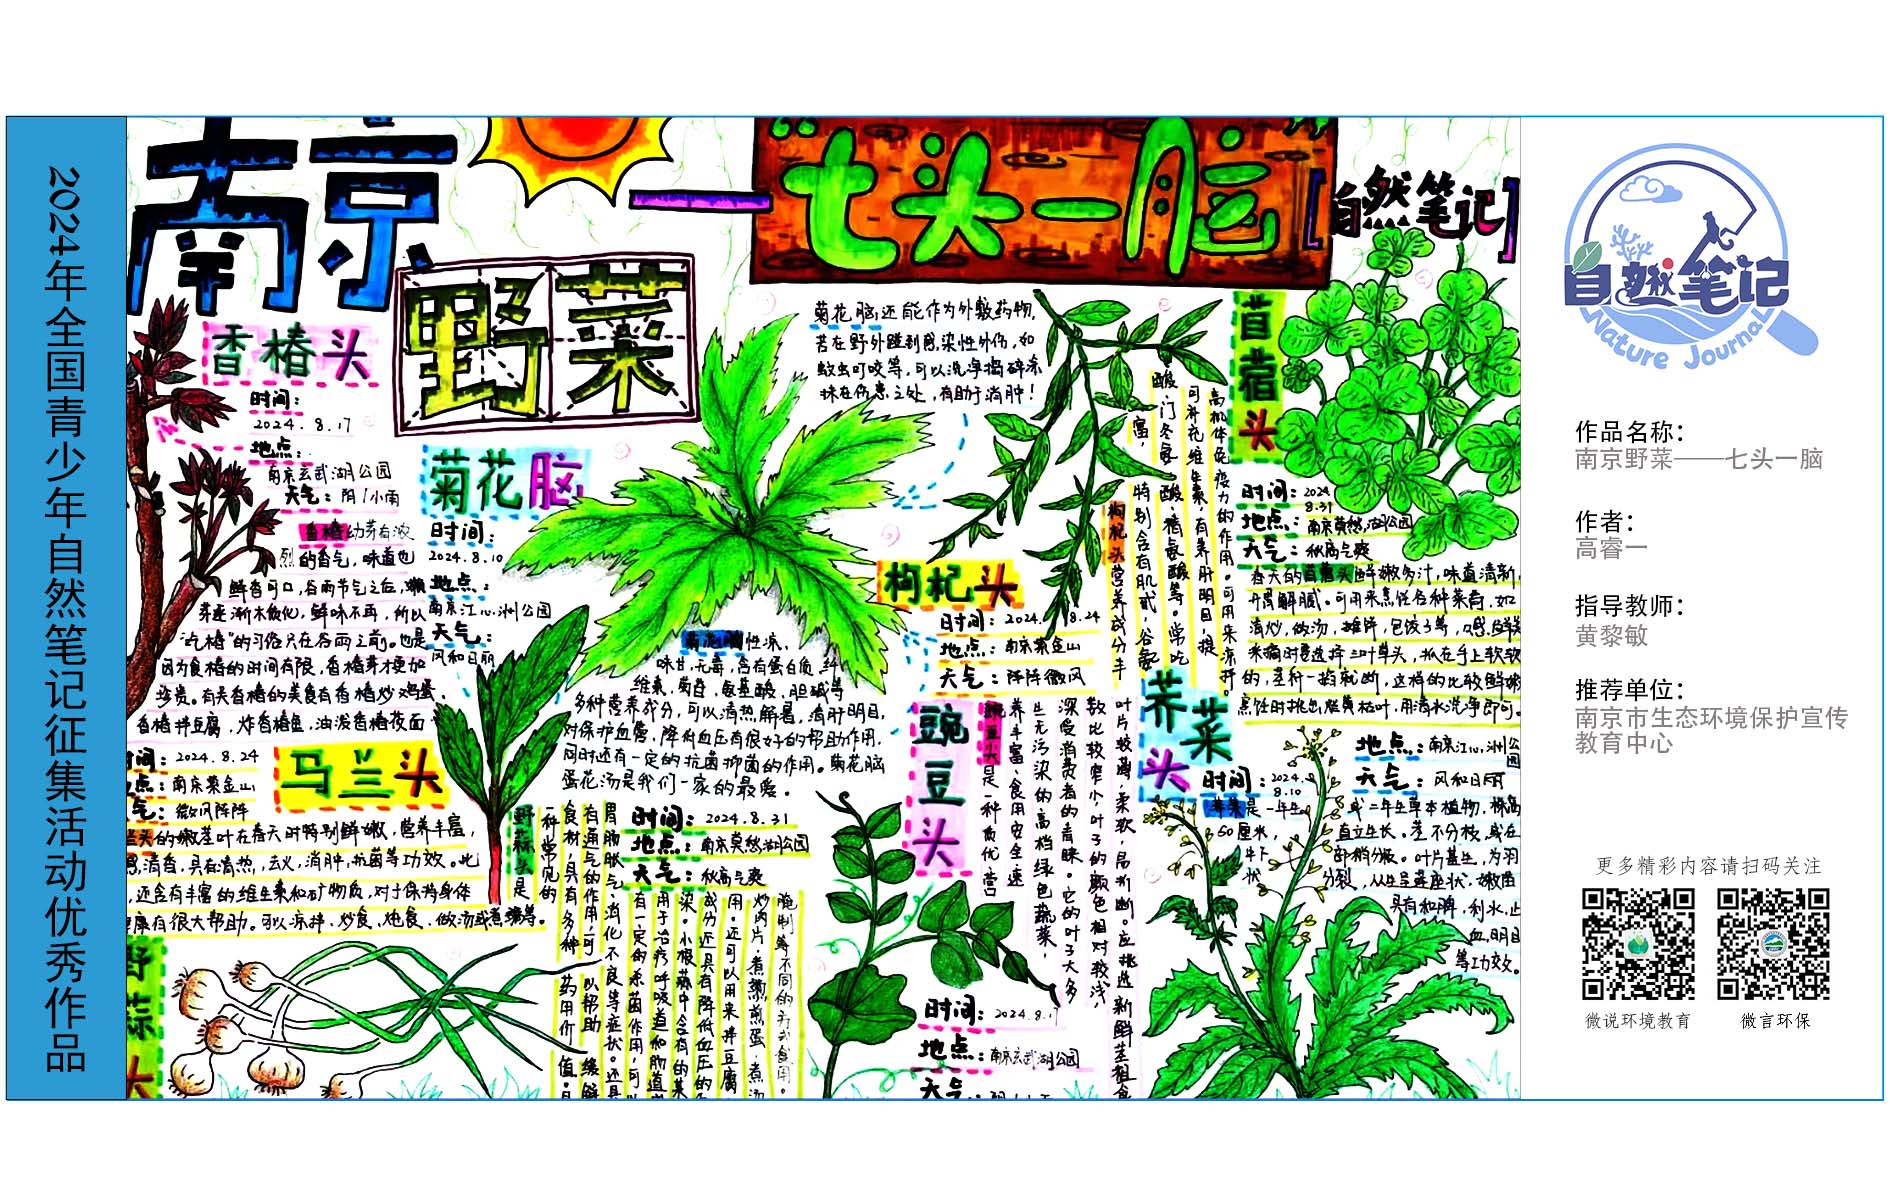 2024年全国青少年自然笔记征集活动优秀作品
南京
野菜
——“七头一脑”
[自然笔记]
香椿头
时间：
2024.8.17
地点：
南京玄武湖公园
天气：阴/小雨
香椿幼芽有浓
烈的香气，味道也
鲜香可口，谷雨节气之后，嫩
芽逐渐木质化，鲜味不再，所以
“吃椿”的习俗只在谷雨之前。也是
因为食椿的时间有限，香椿芽才更加
珍贵。有关香椿的美食有香椿炒鸡蛋、
香椿拌豆腐，炸香椿鱼，油泼香椿莜面
菊花脑
时间：
2024.8.10
地点：
南京江心洲公园
天气：
风和日丽
菊花脑性凉，
味甘，无毒，含有蛋白质，纤
维素，菊苷，氨基酸，胆碱等
多种营养成分，可以清热解暑，清肝明目，
对保护血管，降低血压有很好的帮助作用，
同时还有一定的抗菌抑菌的作用。菊花脑
蛋花汤是我们一家的最爱。
菊花脑还能作为外敷药物，
若在野外碰到感染性外伤，如
蚊虫叮咬等，可以洗净捣碎涂
抹在伤患之处，有助于消肿！
枸杞头
时间：2024.8.24
地点：南京紫金山
天气：阵阵微风
枸杞头营养成分丰
富，特别含有肌甙，谷氨
酸，门冬氨酸，精氨酸等。常吃
可补充维生素，有养肝明目，提
高机体免疫力的作用。可用来凉拌。
苜蓿头
时间：2024
8.31
地点：南京莫愁湖公园
天气：秋高气爽
春天的苜蓿头鲜嫩多汁，味道清新，
开胃解腻。可用来烹饪各种菜肴，如
清炒，做汤，摊饼，包饺子等，
采摘时要选择三叶草头，抓在手上软软
的，茎秆一掐就断，这样的比较鲜嫩
烹饪时挑出烂黄枯叶，用清水洗净即可。
马兰头
时间：2024.8.24
点：南京紫金山
气：微风阵阵
兰头的嫩茎叶在春天时特别鲜嫩，营养丰富，
感清香，具有清热，去火，消肿，抗菌等功效。此
，还含有丰富的维生素和矿物质，对于保持身体
康有很大帮助。可以凉拌，炒食，炖食，做汤或煮粥等。
野蒜头
时间：2024.8.31
地点：南京莫愁湖公园
天气：秋高气爽
野蒜头是
一种常见的
食材，具有多种药用价值。
有通气的作用，可以帮助缓解
胃肠胀气，消化不良等症状。还具
有一定的杀菌作用，可
用于治疗呼吸道和肠道
染。小根蒜中含有的某
成分还具有降低血压的
用。还可以用来拌豆腐
炒肉片，煮粥，煎蛋，煮汤
腌制等不同的方式食用。
豌豆头
时间：2024.8.17
地点：南京玄武湖公园
天气：阴
豌豆尖是一种质优、营
养丰富、食用安全、速
生无污染的高档绿色蔬菜，
深受消费者的青睐。它的叶子大多
数比较窄小，叶子的颜色相对较浅，
叶片较薄，柔软，易折断。应挑选新鲜茎粗食
荠菜头
时间：2024.
8.10
地点：南京江心洲公
园
天气：风和日丽
荠菜是一年生或二年生草本植物，株高
60厘米，直立生长。茎不分枝，或在
部稍分枝。叶片基生，为羽
状分裂，从生呈莲座状，嫩苗
具有和脾，利水，止
血，明目
等功效。
自然笔记
Nature Journal
作品名称：
南京野菜——七头一脑
作者：
高睿一
指导教师：
黄黎敏
推荐单位：
南京市生态环境保护宣传
教育中心
更多精彩内容请扫码关注
微说环境教育
微言环保